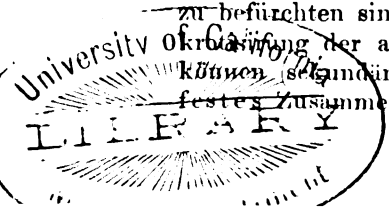 zu befürchten sin
der a
können sekundär
festes Zusamme
University of California
LIBRARY